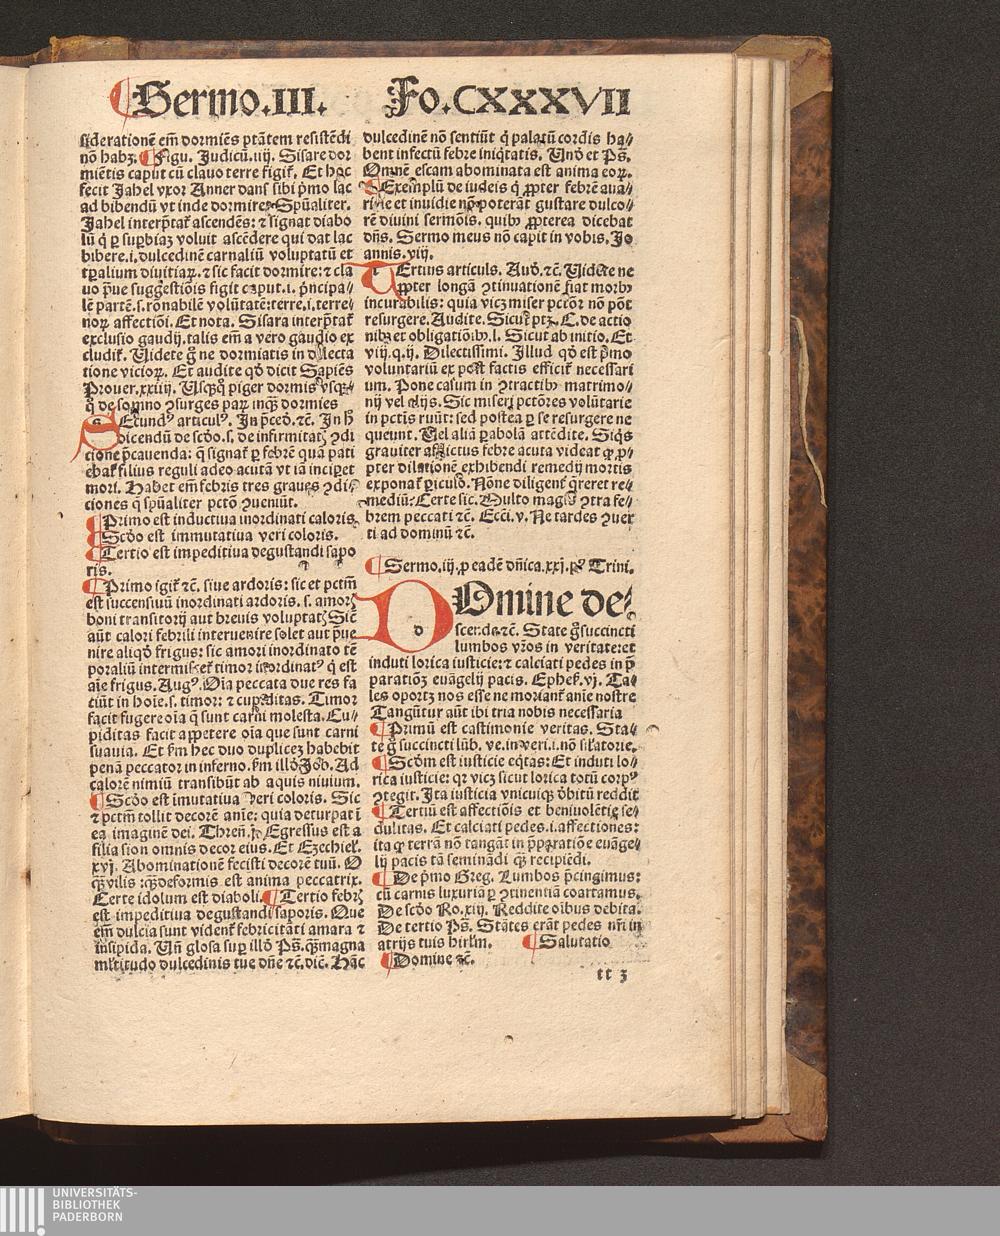 ¶Sermo.III. Fo.CXXXVII
siderationē em̄ dormiēs ptātem resistēdi
nō habꝫ. ¶Figu. Judicū.iiij. Sisare dor
miētis caput cū clauo terre figit᷑. Et hoc
fecit Jahel vxor Anner dans sibi p̄mo lac
ad bibendū vt inde dormiret. Spūaliter.
Jahel interp̄tat᷑ ascendēs: ⁊ signat diabo
lū q̇ ꝑ supbiaꝫ voluit ascēdere qui dat lac
bibere.i.dulcedinē carnaliū voluptatū et
tp̄alium diuitiaꝝ.⁊ sic facit dormire: ⁊ cla
uo p̄ue suggestiōis figit caput.i. p̄ncipa⸗
lē partē.s.rōnabilē volūtatē:terre.i.terre⸗
noꝝ affectiōi. Et nota. Sisara interp̄tat᷑
exclusio gaudij.talis em̄ a vero gaudio ex
cludit᷑. Uidete g̊ ne dormiatis in delecta
tione vicioꝝ. Et audite qd̄ dicit Sapiēs
Prouer.xxiiij. Usq̄q̊ piger dormis vsq̄⸗
q̊ de somno ꝯsurges paꝝ inq̄ dormies
SEcundꝰ articulꝰ. In p̄ced. ⁊c̄. In h̊
dicendū de scd̄o.s. de infirmitatꝭ ꝯdi
tione p̄cauenda: q̄ signat᷑ ꝑ febrē quā pati
ebat᷑ filius reguli adeo acutā vt iā inciꝑet
mori. Habet em̄ febris tres graues ꝯdi⸗
ciones q̄ spūaliter pctō ꝯueniūt.
¶Primo est inductiua inordinati caloris
¶Scd̄o est immutatiua veri coloris.
¶Tertio est impeditiua degustandi sapo
ris.
¶Primo igit᷑ ⁊c̄. siue ardoris: sic et pctm̄
est succensiuū inordinati ardoris. s. amorꝭ
boni transitorij aut breuis voluptatꝭ Sic̄
aūt calori febrili interuenire solet aut p̄ue
nire aliqd̄ frigus: sic amori inordinato tē
poraliū intermiscet᷑ timor inordinatꝰ q̇ est
aīe frigus. Augꝰ. Oīa peccata due res fa
ciūt in hoīe.s. timor: ⁊ cupiditas. Timor
facit fugere oīa q̄ sunt carni molesta. Cu⸗
piditas facit appetere oīa que sunt carni
suauia. Et km̄ hec duo dupliceꝫ habebit
penā peccator in inferno. km̄ illd̄ Job. Ad
calorē nimiū transibūt ab aquis niuium.
¶Scd̄o est imutatiua veri coloris. Sic
⁊ pctm̄ tollit decorē anīe: quia deturpat ī
ea imaginē dei. Thren̄.j. Egressus est a
filia sion omnis decor eius. Et Ezechiel.
xvj. Abominationē fecisti decorē tuū. O
q̄ꝫ vilis : q̄ꝫ deformis est anima peccatrix.
Certe idolum est diaboli. ¶Tertio febrꝭ
est impeditiua degustandi saporis. Que
em̄ dulcia sunt vident᷑ febricitāti amara ⁊
insipida. Uñ glosa suꝑ illd̄ Ps̄. q̄ꝫ magna
mltitudo dulcedinis tue dn̄e ⁊c̄. dic̄. Hāc
dulcedinē nō sentiūt q̇ palatū cordis ha⸗
bent infectū febre iniq̇tatis. Un̄ et Ps̄.
Omnē escam abominata est anima eoꝝ.
¶Exemplū de iudeis q̇ ꝓpter febrē aua⸗
ricie et inuidie nō poterāt gustare dulco⸗
rē diuini sermōis. quibꝰ ꝓpterea dicebat
dn̄s. Sermo meus nō capit in vobis. Jo
annis.viij.
TErtius articuls. Aud̄. ⁊c̄. Uidete ne
ꝓpter longā ꝯtinuationē fiat morbꝰ
incurabilis: quia vicꝫ miser pctōr nō pōt
resurgere. Audite. Sicut ptꝫ. C. de actio
nibꝫ et obligatiōibꝰ.l. Sicut ab initio. Et
viij.q.ij. Dilectissimi. Illud qd̄ est p̄mo
voluntariū ex post factis efficit᷑ necessari
um. Pone casum in ꝯtractibꝰ matrimo⸗
nij vel alijs. Sic miseri pctōres volūtarie
in pctīs ruūt: sed postea ꝑ se resurgere ne
queunt. Uel aliā ꝑabolā attēdite. Siq̇s
grauiter afflictus febre acuta videat ꝙ ꝓ⸗
pter dilationē exhibendi remedij mortis
exponat᷑ ꝑiculo. Nōne diligent᷑ q̄reret re⸗
mediū: Certe sic. Multo magis ꝯtra fe⸗
brem peccati ⁊c̄. Ecci.v. Ne tardes ꝯuer
ti ad dominū ⁊c̄.
¶Sermo.iij.ꝓ eadē dn̄ica.xxj.pꝰ Trini.
DOmine de⸗
scende.⁊c̄. State g̊ succincti
lumbos vr̄os in veritate: et
induti lorica iusticie: ⁊ calciati pedes in p̄
paratiōꝫ euāgelij pacis. Ephes. vj. Ta⸗
les oportꝫ nos esse ne moriant᷑ anīe nostre
Tangūtur aūt ibi tria nobis necessaria
¶Primū est castimonie veritas. Sta⸗
te g̊ succincti lūb. ve.in veri.i.nō silatorie.
¶Scd̄m est iusticie eq̇tas: Et induti lo⸗
rica iusticie: qꝛ vicꝫ sicut lorica totū corpꝰ
ꝯtegit. Ita iusticia vnicuiqꝫ debitū reddit
¶Tertiū est affectiōis et beniuolētie se⸗
dulitas. Et calciati pedes.i.affectiones:
ita ꝙ terrā nō tangāt in p̄paratiōe euāge⸗
lij pacis tā seminādi q̄ꝫ recipiēdi.
¶De p̄mo Greg. Lumbos p̄cingimus:
cū carnis luxuriā ꝑ ꝯtinentiā coartamus.
De scd̄o Ro.xiij. Reddite oībus debita.
De tertio Ps̄. Stātes erāt pedes nr̄i in
atrijs tuis hirlm̄. ¶Salutatio
¶Domine ⁊c̄.
tt 3
UNIVERSITÄTS-
BIBLIOTHEK
PADERBORN